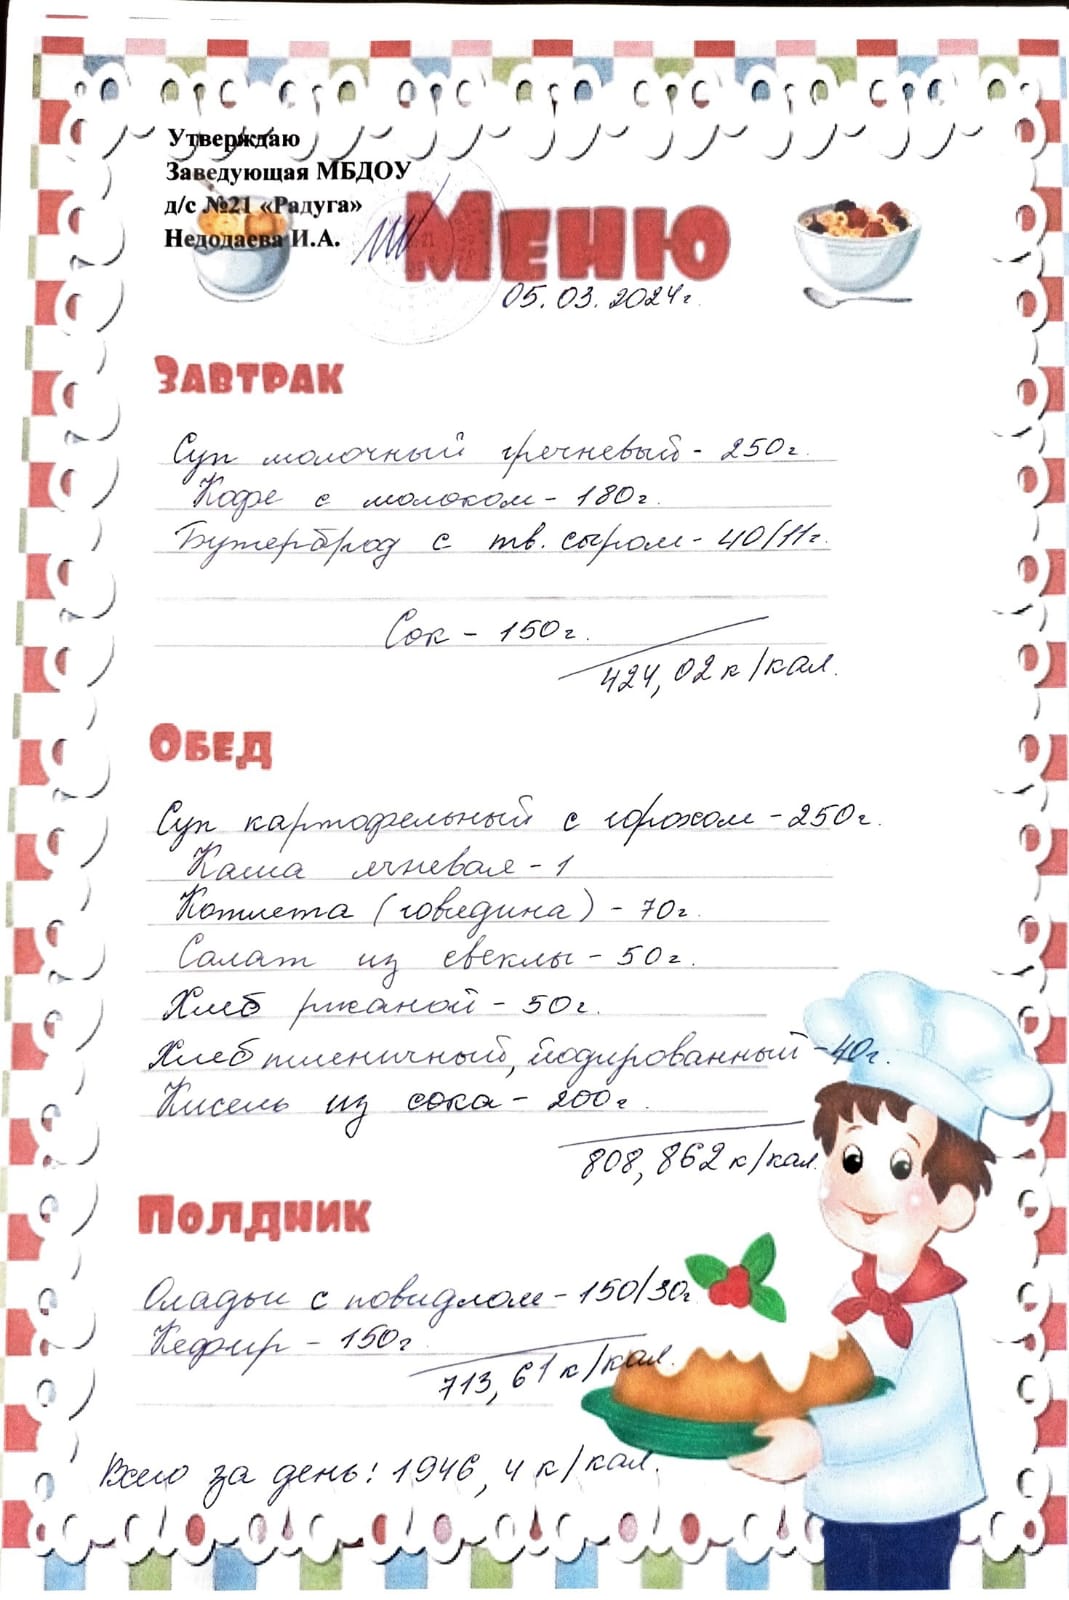 Утверждаю
Заведующая МБДОУ
д/с №21 «Радуга»
Недодаева И.А.
Меню
05.03.2024г.
Завтрак
Суп молочный гречневый - 250г.
Кофе с молоком - 180г.
Бутерброд с тв. сыром - 40/11г.
Сок - 150г.
424,02 к/кал.
Обед
Суп картофельный с горохом - 250г.
Каша ячневая - 1
Котлета (говядина) - 70г.
Салат из свеклы - 50г.
Хлеб ржаной - 50г.
Хлеб пшеничный, йодированный - 40г.
Кисель из сока - 200г.
808,862 к/кал.
Полдник
Оладьи с повидлом - 150/30г.
Кефир - 150г
713,61 к/кал.
Всего за день: 1946,4 к/кал.